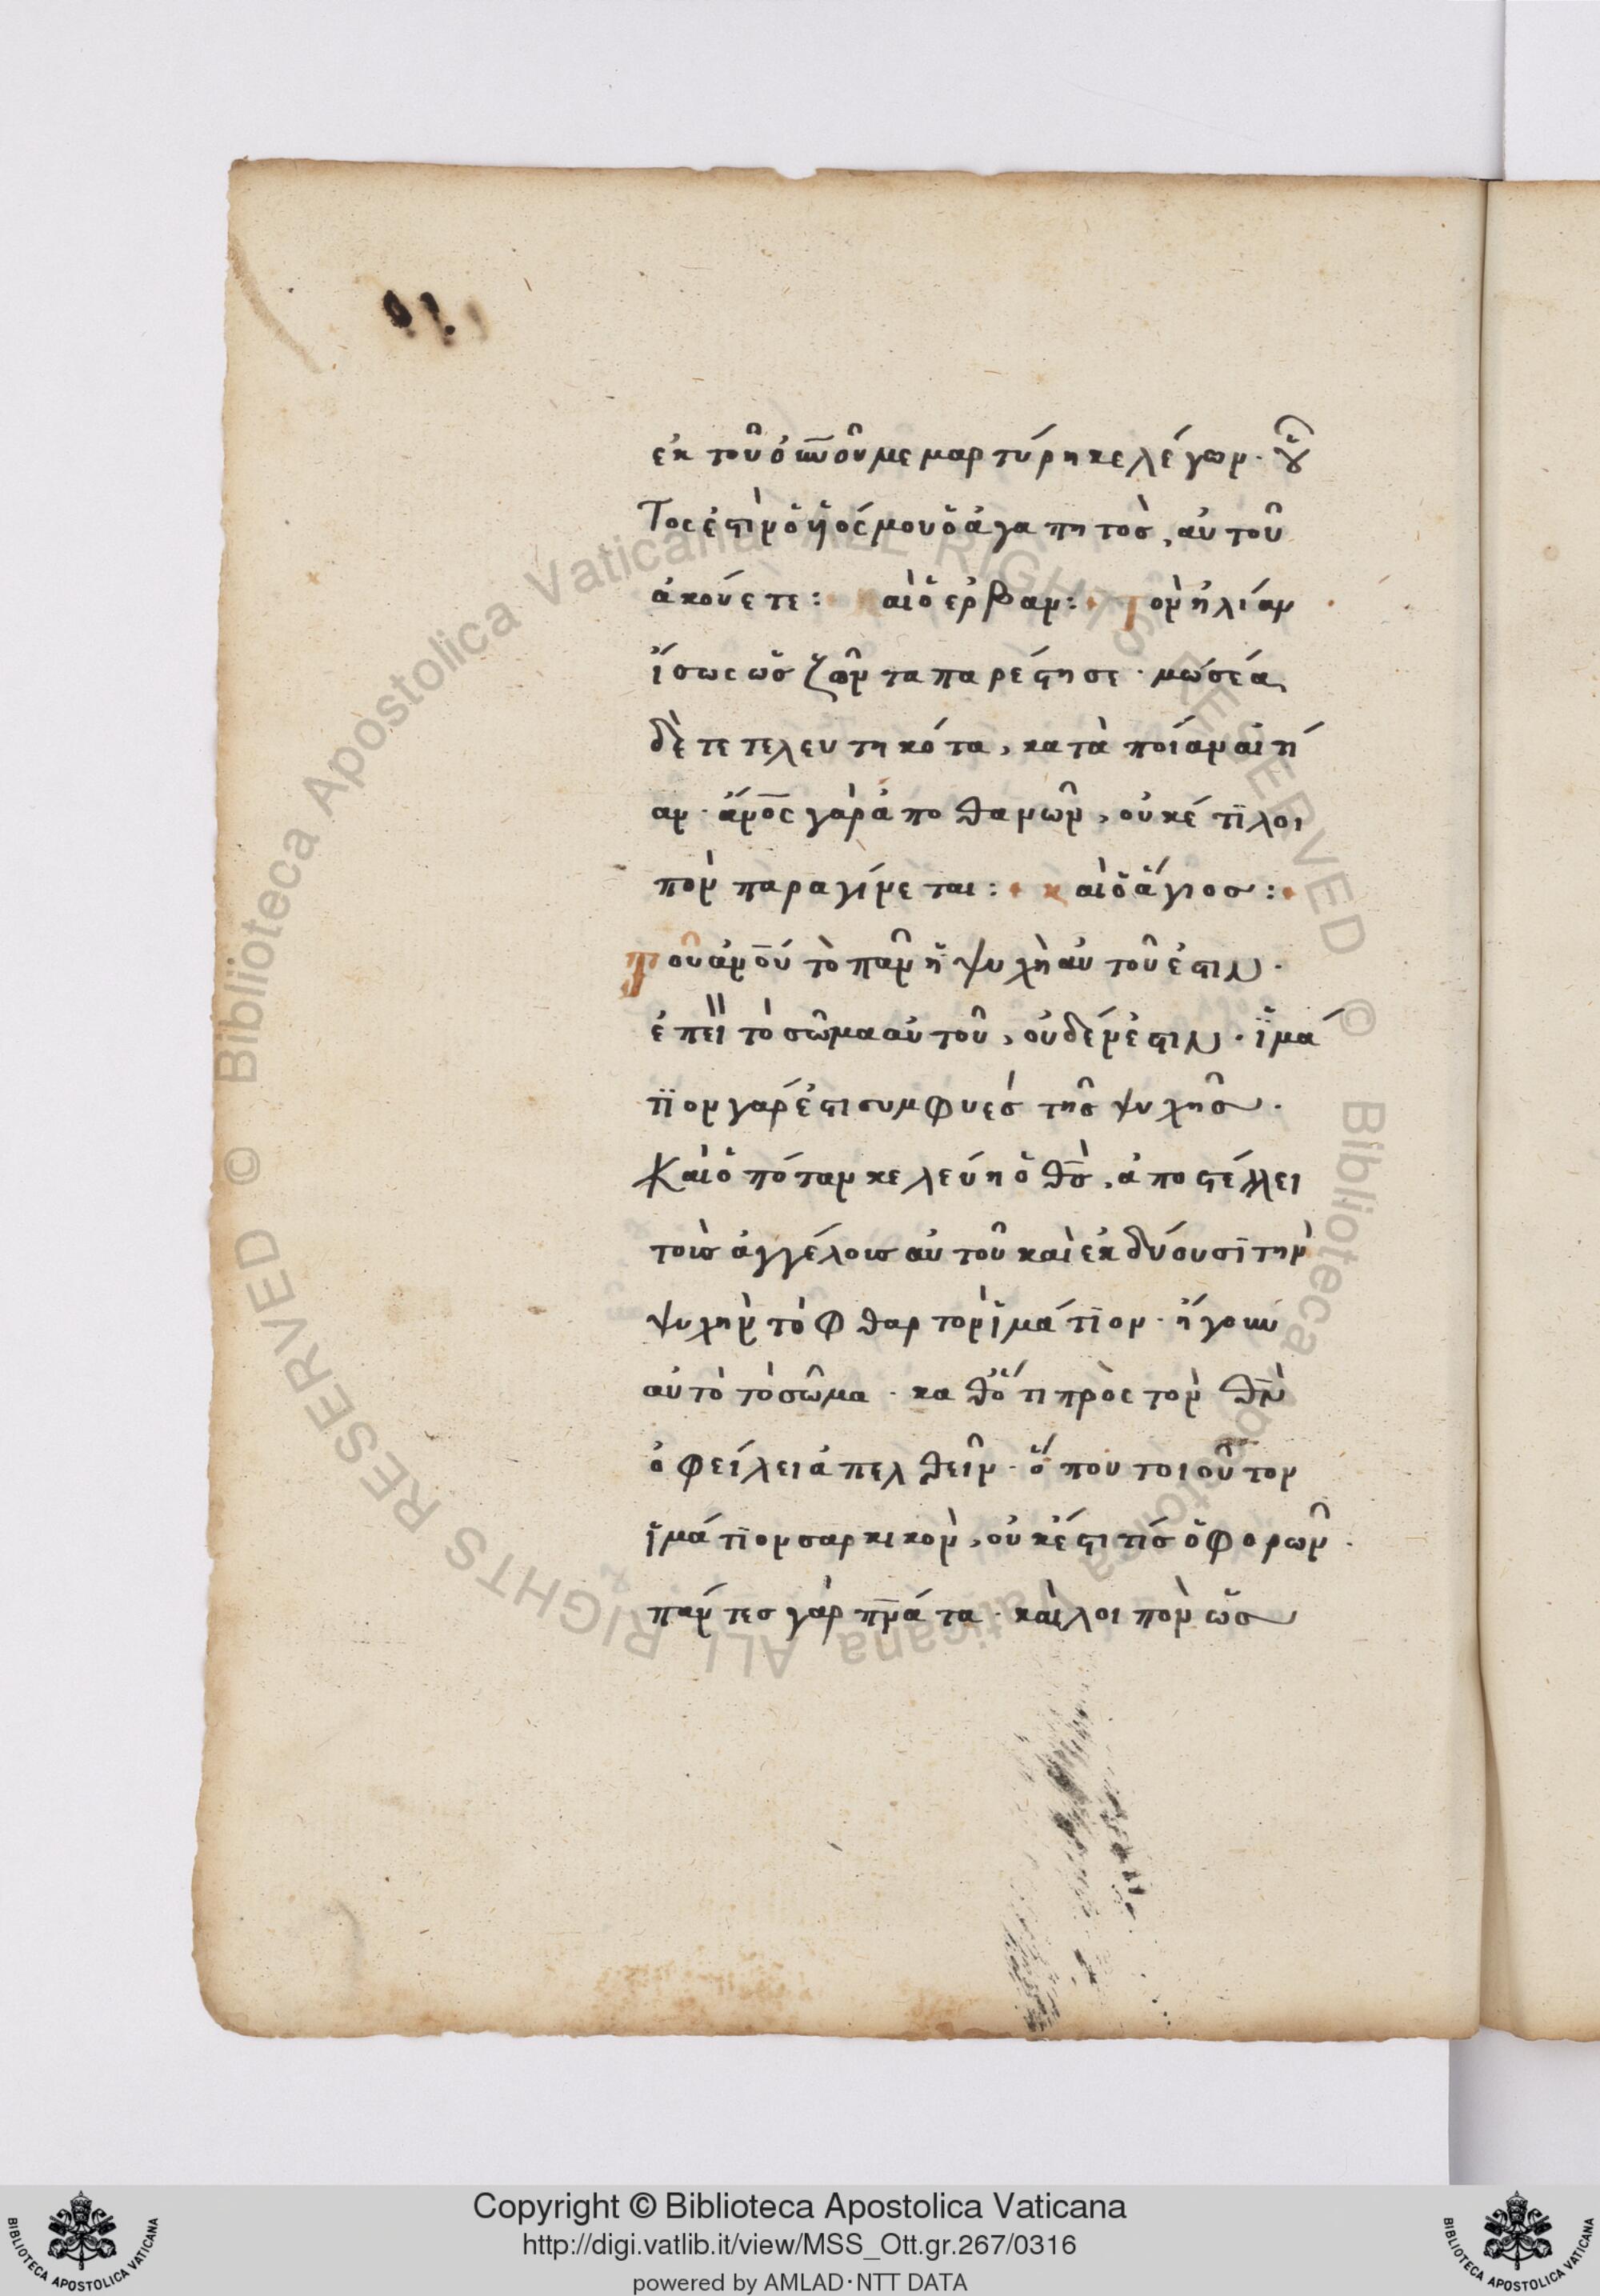 ἐκ τοῦ ὀυνοῦ μεμαρτύρηκε λέγων· οὗ
τος ἐστὶν ὁ ὑιός μου ὁ ἀγαπητὸς, αὐτοῦ
ἀκούετε: καὶ ὁ ἐρβαν: τὸν ἠλίαν
ἴσως ὡς ζῶντα παρέστησε· μωσέα
δὲ τετελευτηκότα, κατὰ ποίαν αἰτί
αν· ἄνος γὰρ ἀποθανὼν, οὐκέτι λοι
πὸν παραγίνεται: καὶ ὁ ἅγιος:
τοῦ ἀνου τὸ πᾶν ἡ ψυχὴ αὐτοῦ ἐστιν·
ἐπεὶ τὸ σῶμα αὐτοῦ, οὐδέν ἐστιν· ἱμά
τιον γάρ ἐστι συμφυὲς τῆς ψυχῆς·
καὶ ὁπόταν κελεύη ὁ θς, ἀποστέλλει
τοὶς ἀγγέλοις αὐτοῦ καὶ ἐκδύουσι τὴν
ψυχὴν τὸ φθαρτὸν ἱμάτιον· ἤγουν
αὐτὸ τὸ σῶμα· καθότι πρὸς τὸν θν
ὀφείλει ἀπελθεῖν· ὅπου τοιοῦτον
ἱμάτιον σαρκικὸν, οὐκ ἔστι τίς ὁ φορῶν·
πάντες γὰρ πνάτα· καὶ λοιπὸν ὡς
Copyright © Biblioteca Apostolica Vaticana
http://digi.vatlib.it/view/MSS_Ott.gr.267/0316
powered by AMLAD·NTT DATA
BIBLIOTECA APOSTOLICA VATICANA
BIBLIOTECA APOSTOLICA VATICANA
© Biblioteca Apostolica Vaticana ALL RIGHTS RESERVED © Biblioteca Apostolica Vaticana ALL RIGHTS RESERVED